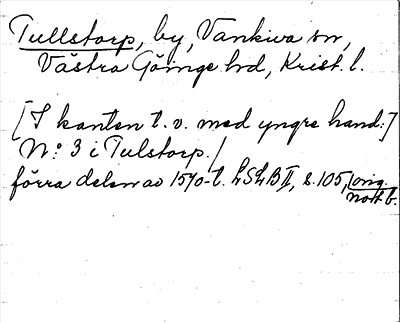 Tullstorp, by, Vankiva sn,
Västra Göinge hd, Krist. l.
[I kanten t. v. med yngre hand:]
N:o 3 i Tulstorp./
förra delen av 1570-t. LSLB II, s. 105, orig.
nott b.